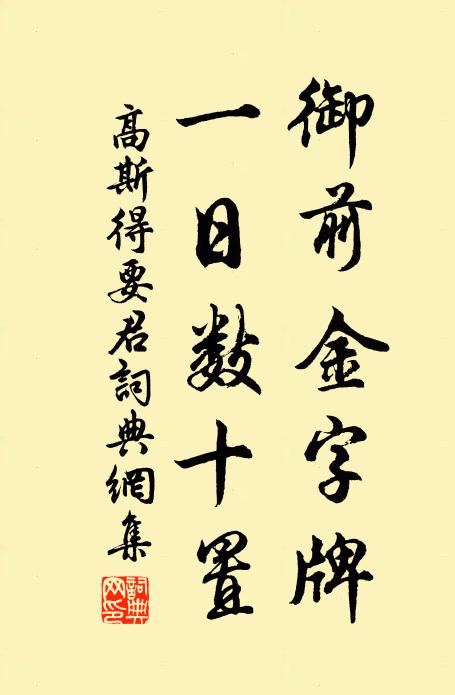 御前金字牌
一日数十置
高斯得要君詞典網集
詞典
网印